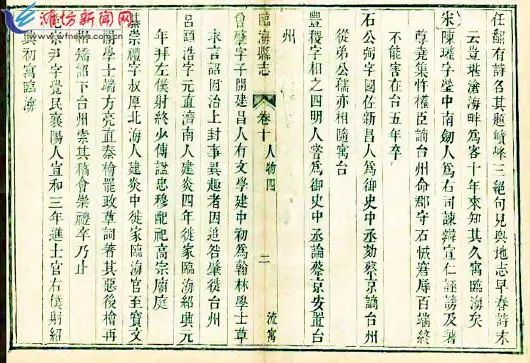 潍坊新闻网
任翻有詩名其題巾峰三絕句見輿地志早春詩末
云豈堪滄海畔為客十年來知其久寓臨海矣
宋陳瓘字瑩中南劍人為右司諫辯宣仁誣謗及著
尊堯集忤權臣謫台州命郡守石悈窘辱百端終
不能害在台五年卒
石公弼字國佐新昌人為御史中丞劾蔡京謫台州
從弟公孺亦相隨寓台
豐稷字相之四明人嘗為御史中丞論蔡京安置台
州
臨海縣志 卷十 人物四 二 流寓
曾肇字子開建昌人有文學建中初為翰林學士草
求言詔因治上封事異趣者因追咎肇徙台州
呂頤浩字元直濟南人建炎四年徙家臨海紹興元
年拜左僕射終少傅諡忠穆配祀高宗廟庭
綦崇禮字叔厚北海人建炎中徙家臨海官至寶文
閣學士端方亮直秦檜罷政草詞著其惡後檜再
相矯詔下台州索其稿會崇禮卒乃止
范宗尹字覺民襄陽人宣和三年進士官右僕射紹
興初寓臨海